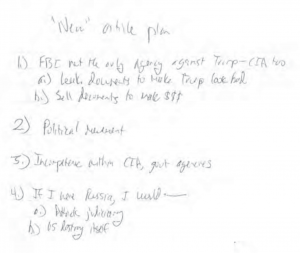 "New" article plan
1.) FBI not the only Agency against Trump - CIA too
a.) Leak documents to make Trump look bad
b.) Sell documents to make $$$
2) Political movement
3.) Incompetence within CIA, govt agencies
4.) If I were Russia, I would —
a.) Attack judiciary
b.) US hating itself